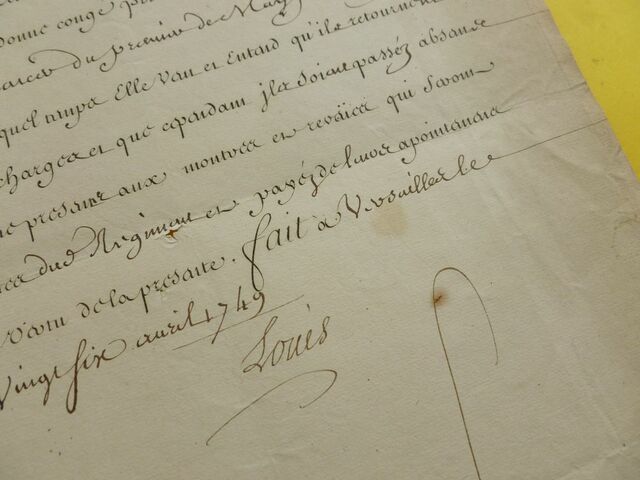 donne congé
du premier de May
quel temps Elle Veut et Entend qu'ils retournent
charges et que cependant ils soient passéz absans
presents aux montres et reveües qui seront
dud Regiment et payéz de leurs apointemens
Vertu de la presente. fait a Versailles le
Vingt six avril 1749
Louis